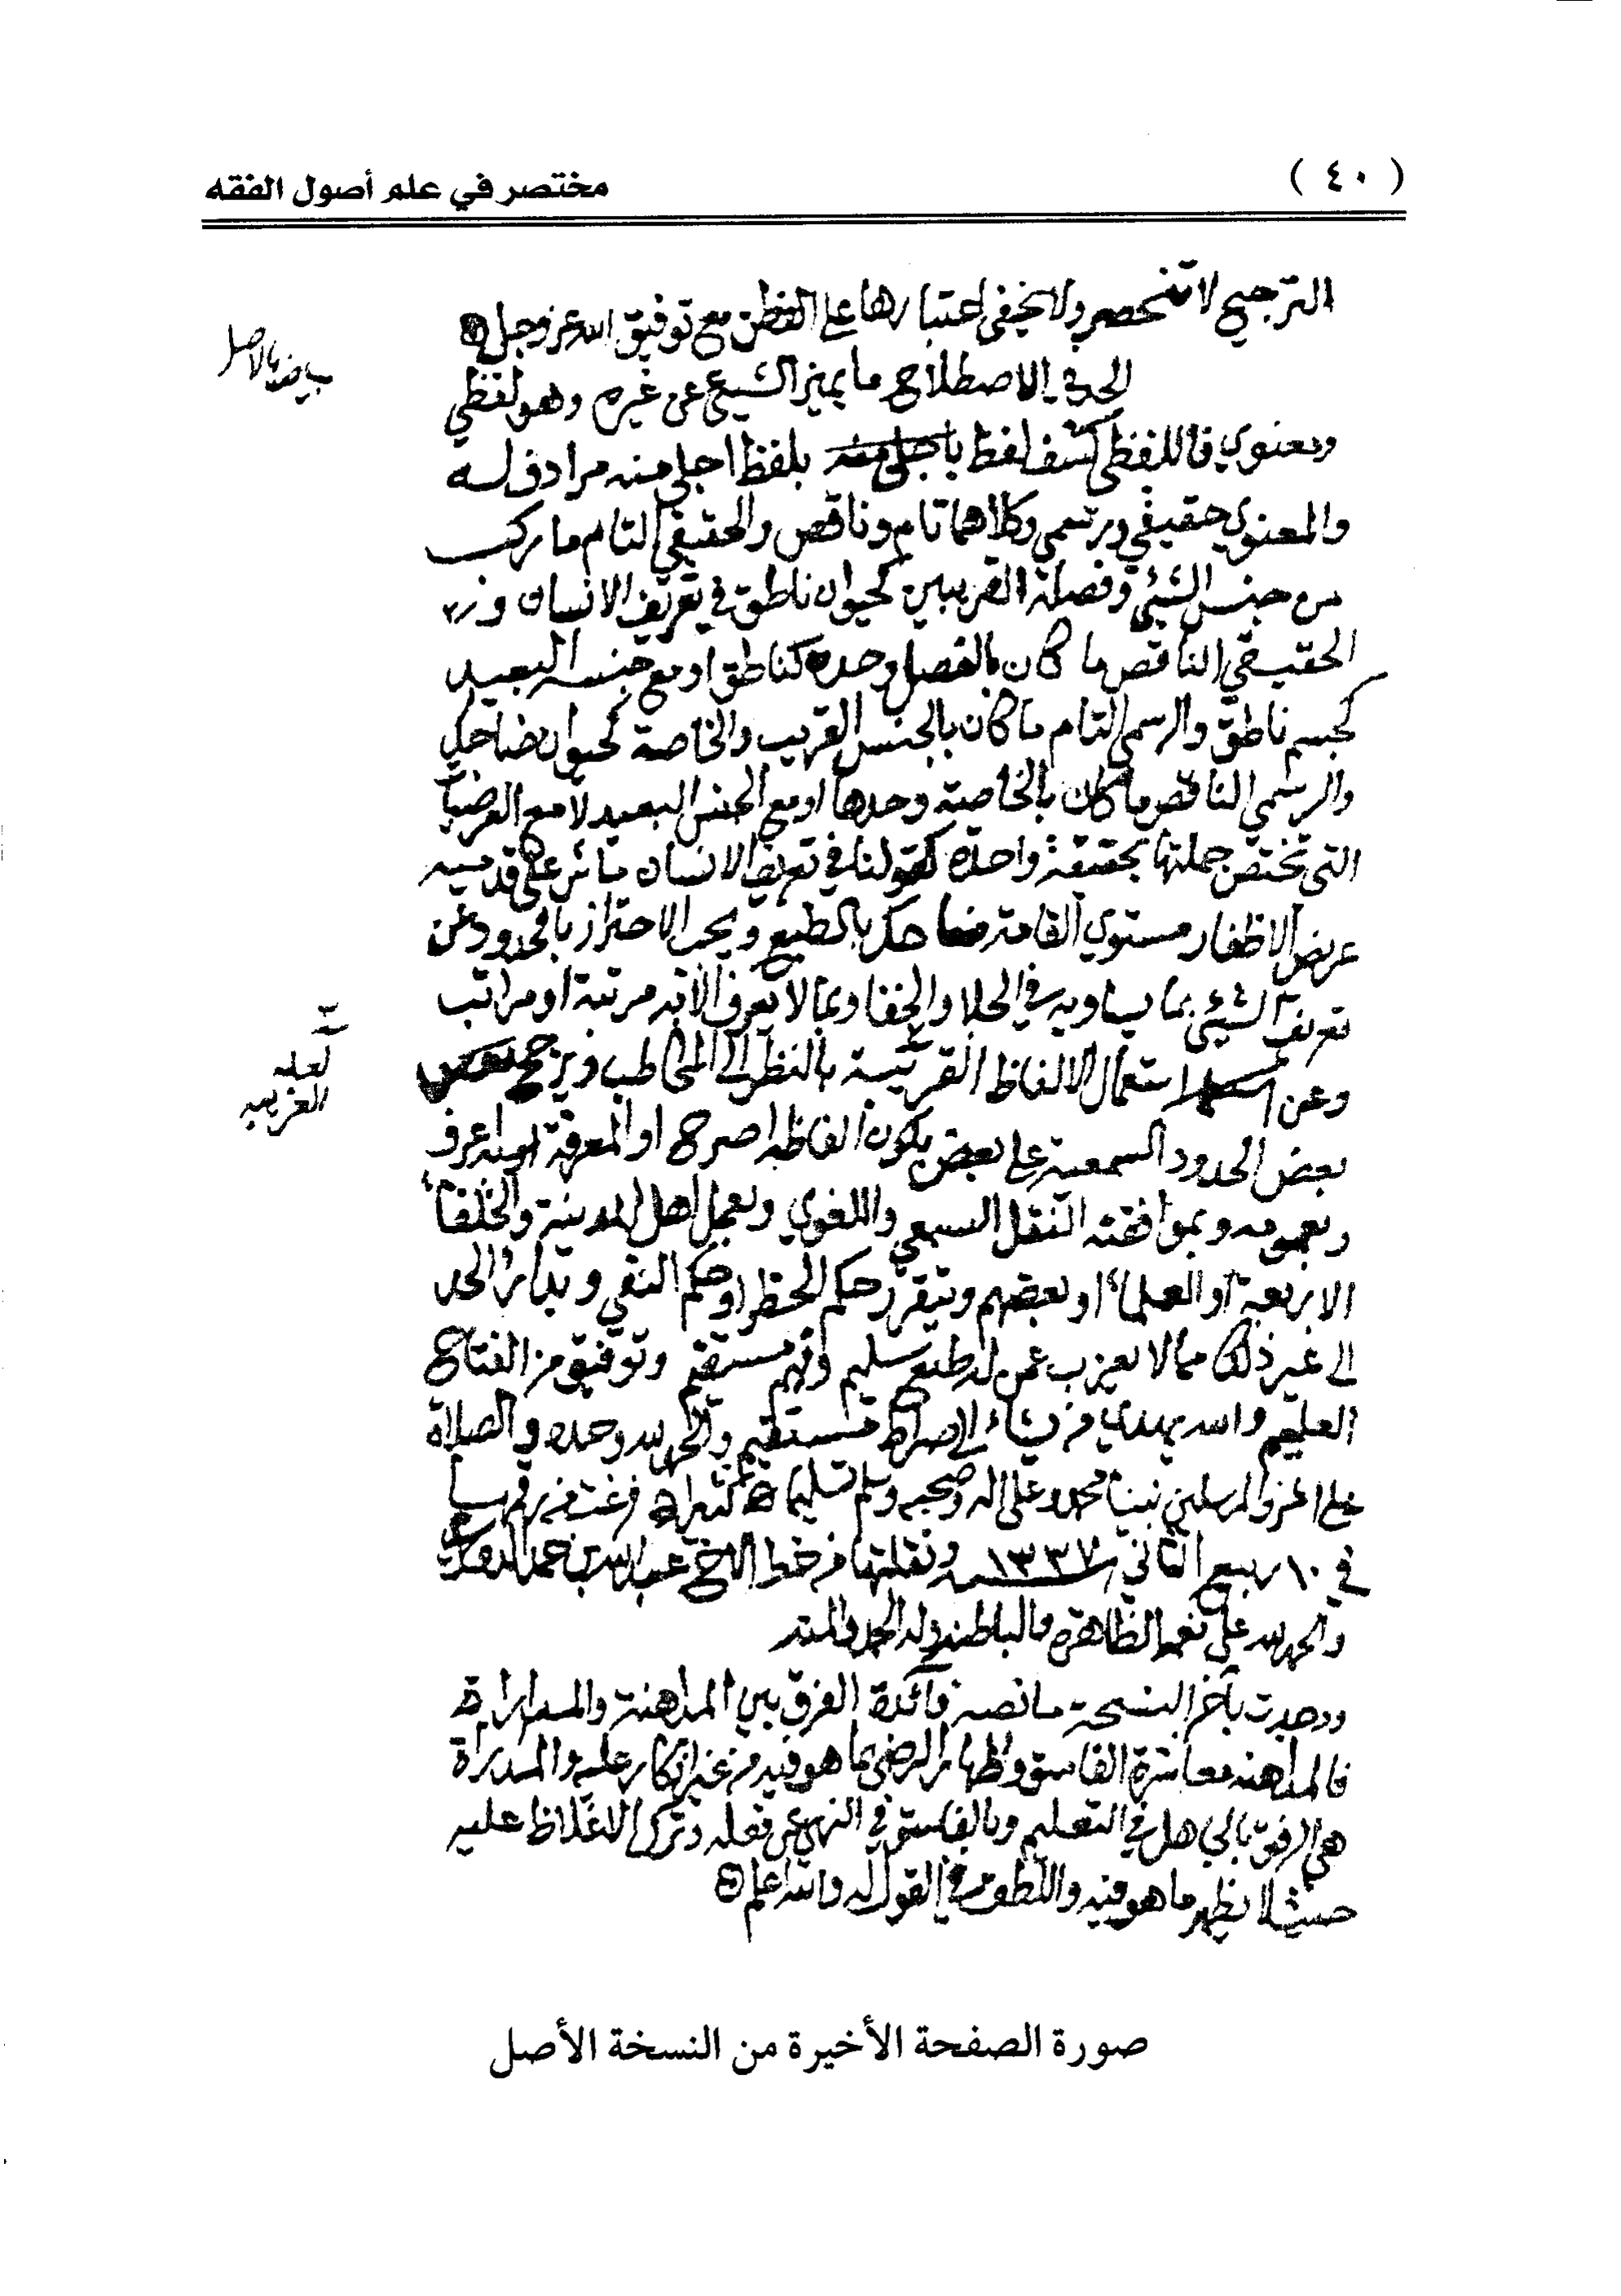 ( ٤٠ )
مختصر في علم أصول الفقه
الترجيح لا تنحصر ولا يخفى اعتبارها على الفطن مع توفيق الله عز وجل
بياض بالاصل
الحد في الاصطلاح ما يميز الشيئ عن غيره وهو لفظي
ومعنوي فاللفظي كشف لفظ بلفظ اجلى منه مرادف له
والمعنوي حقيقي ورسمي وكلاهما تام وناقص والحقيقي التام ما ركب
من جنس الشيئ وفصله القريبين كحيوان ناطق في تعريف الانسان
الحقيقي الناقص ما كان بالفصل وحده كناطق او مع جنسه البعيد
كجسم ناطق والرسمي التام ما كان بالجنس القريب والخاصة كحيوان ضاحك
والرسمي الناقص ما كان بالخاصة وحدها او مع الجنس البعيد لا مع العرضيات
التي تختص جملتها بحقيقة واحدة كقولنا في تعريف الانسان ماش على قدميه
عريض الاظفار مستوي القامة ضاحك بالطبع ويجب الاحتراز بالحدود عن
تعريف الشيئ بما يساويه في الجلا والخفا وبما لا يعرف الا به مرتبة او مراتب
وعن استعمال الالفاظ القريبة بالنظر الى المخاطب ويرجح
لعله
الغريبه
بعض الحدود السمعية على بعض بكون الفاظه اصرح او المعرفة اعرف
وبعمومه وبموافقته النقل السمعي واللغوي وبعمل اهل المدينة والخلفاء
الاربعة او العلماء او بعضهم وبتقرر حكم الحظر او حكم النفي وبدار الحد
الى غير ذلك مما لا يعزب عن له طبع سليم وفهم مستقيم وتوفيق من الفتاح
العليم والله يهدي من يشاء الى صراط مستقيم والحمد لله وحده والصلاة
على المرسلين نبينا محمد وعلى اله وصحبه وسلم تسليما كثيرا فرغت من
في ١٠ ربيع الثاني ١٣٣٧ ونقلتها من خط الاخ عبدالله بن حمد
والحمد لله على نعمه الظاهرة والباطنة وله الحمد والمنة
ووجدت بآخر النسخة ما نصه فائدة الفرق بين المداهنة والمداراة
فالمداهنه معاشرة الفاسق واظهار الرضى بما هو فيه من غير انكار عليه والمداراة
هي الرفق بالجاهل في التعليم وبالفاسق في النهي عن فعله وترك الاغلاظ عليه
حيث لا يظهر ما هو فيه واللطف في القول له والله اعلم
صورة الصفحة الأخيرة من النسخة الأصل